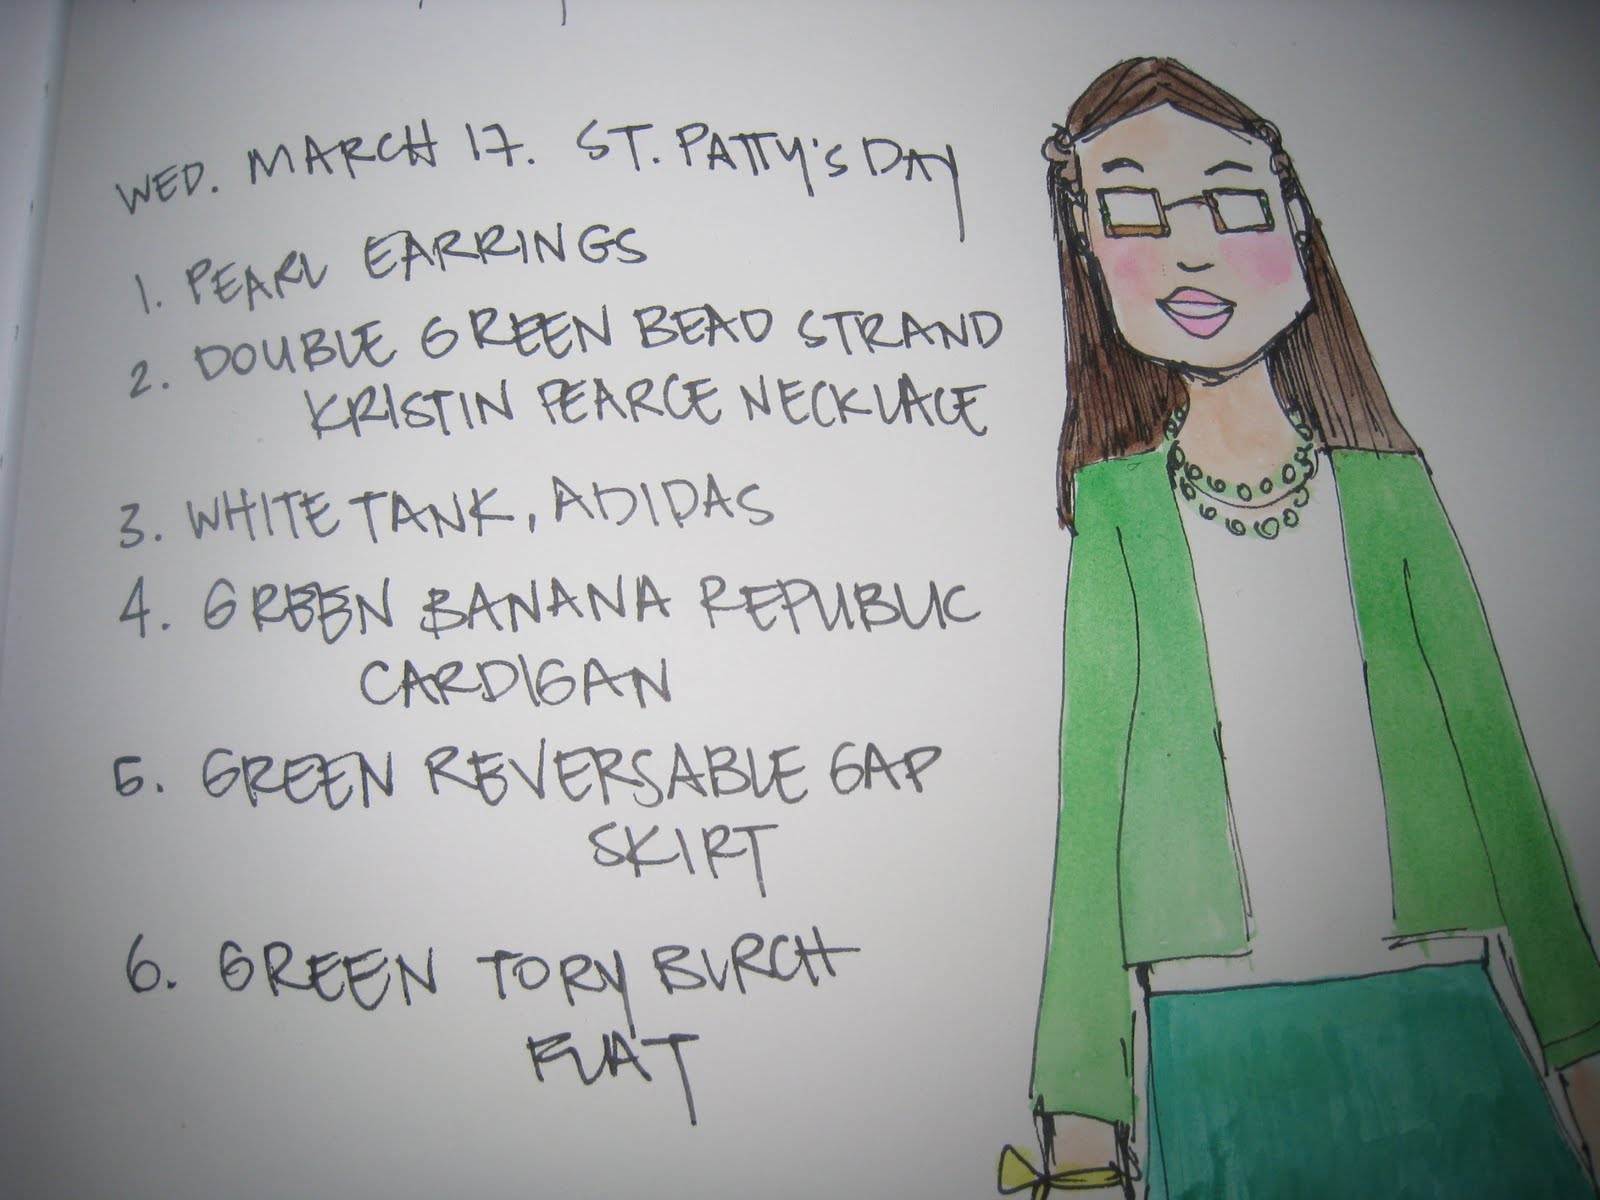 WED. MARCH 17. ST. PATTY'S DAY
1. PEARL EARRINGS
2. DOUBLE GREEN BEAD STRAND
KRISTIN PEARCE NECKLACE
3. WHITE TANK, ADIDAS
4. GREEN BANANA REPUBLIC
CARDIGAN
5. GREEN REVERSABLE GAP
SKIRT
6. GREEN TORY BURCH
FLAT